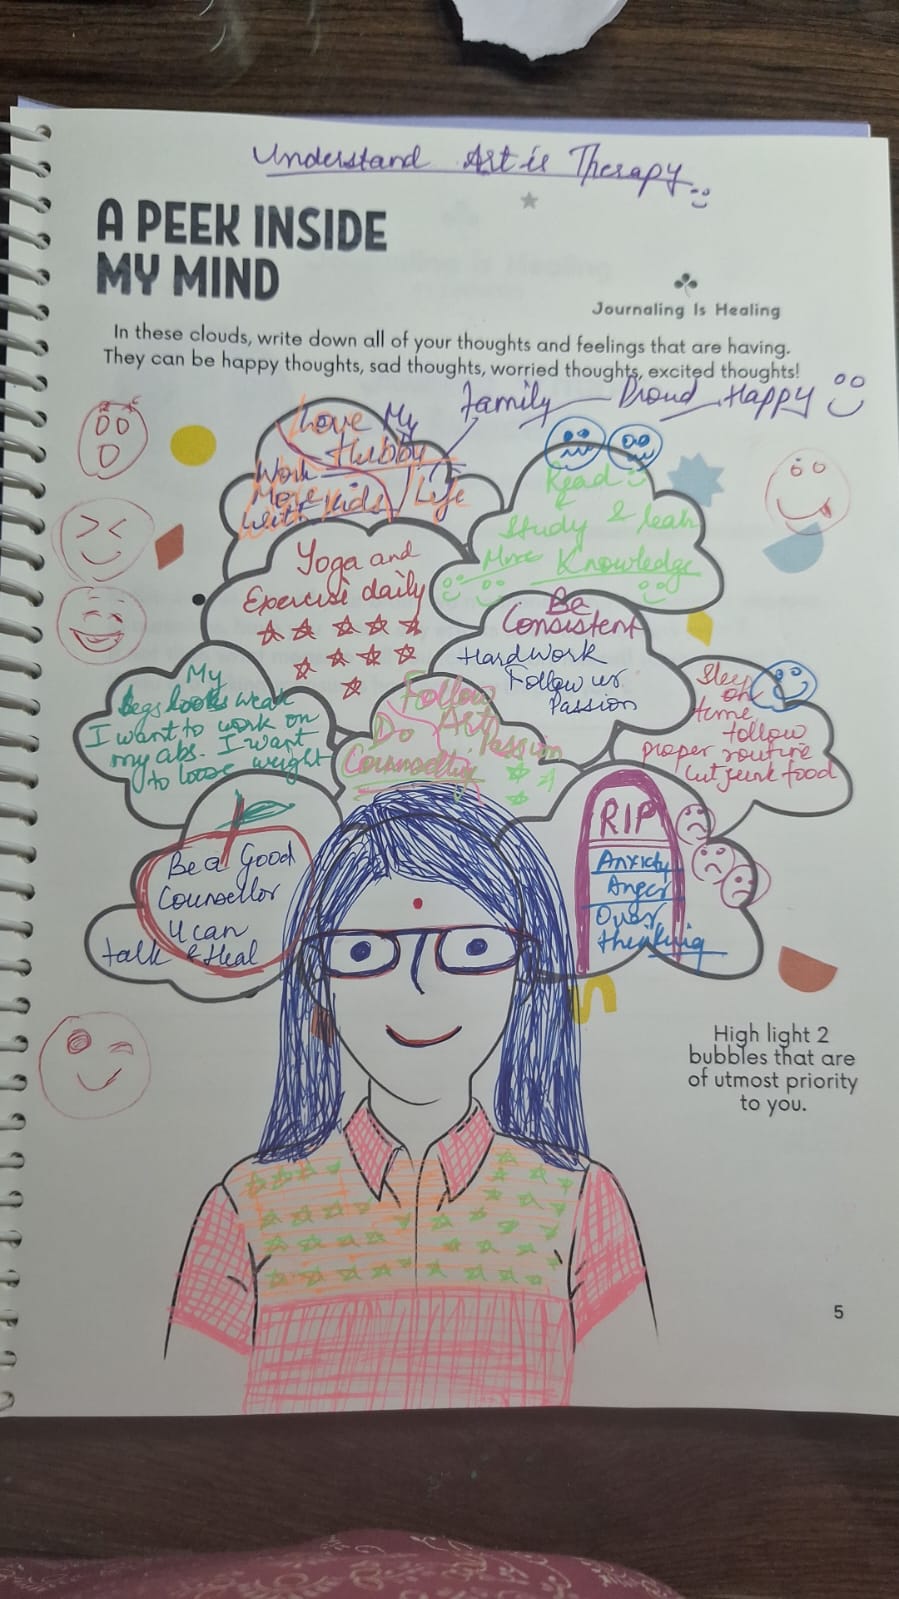 Understand Art is Therapy
A PEEK INSIDE
MY MIND
Journaling Is Healing
In these clouds, write down all of your thoughts and feelings that are having.
They can be happy thoughts, sad thoughts, worried thoughts, excited thoughts!
Family Proud Happy
Love My
Hubby
Work
More
with kids / Life
Read
&
Study & leah
More Knowledge
Yoga and
Exercise daily
Be
Consistent
Hardwork
Follow ur
Passion
My
legs looks weak
I want to work on
my abs. I want
to loose weight
Follow
Art
Do Passion
Counselling
Sleep
on
time
follow
proper routine
Cut junk food
Be a Good
Counsellor
U can
talk & Heal
RIP
Anxiety
Anger
Over
thinking
High light 2
bubbles that are
of utmost priority
to you.
5